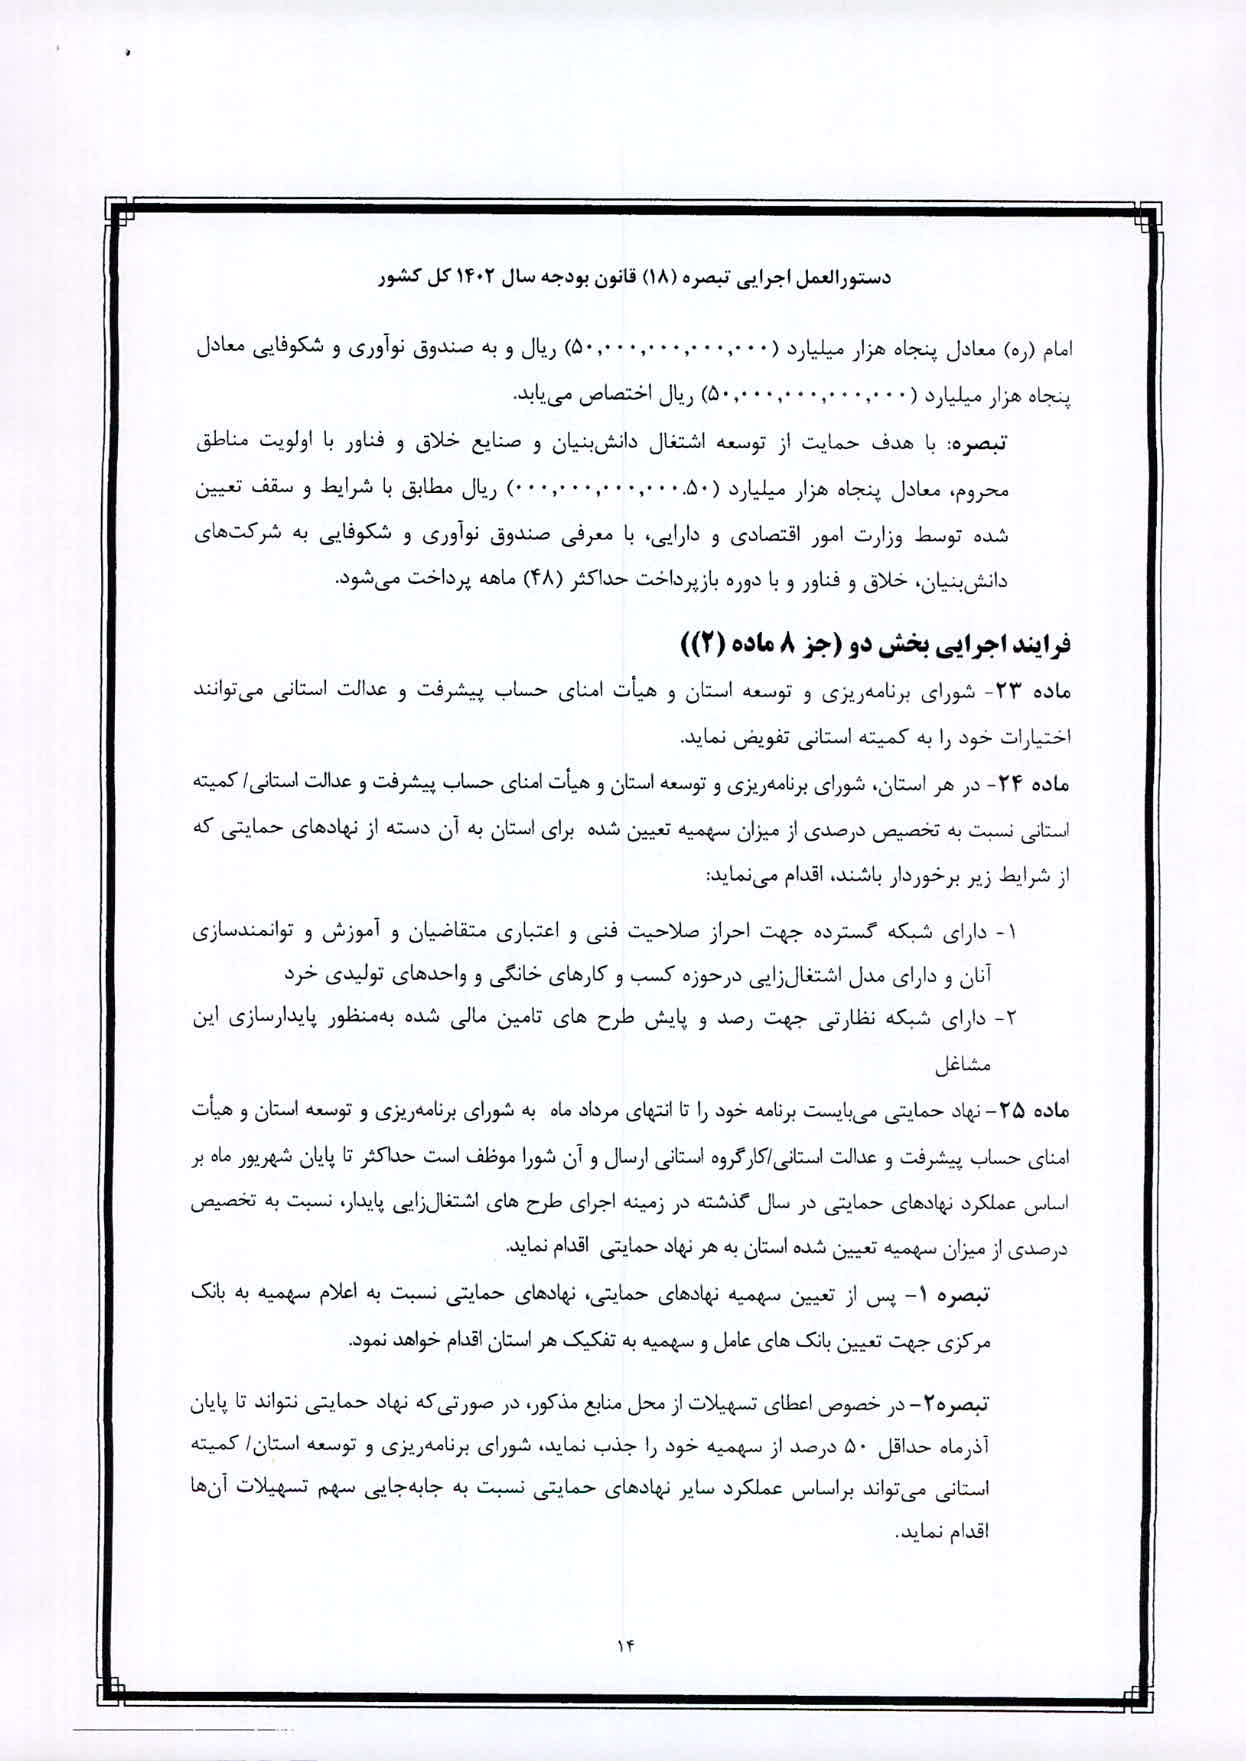 دستورالعمل اجرایی تبصره (۱۸) قانون بودجه سال ۱۴۰۲ کل کشور
امام (ره) معادل پنجاه هزار میلیارد (۵۰,۰۰۰,۰۰۰,۰۰۰,۰۰۰) ریال و به صندوق نوآوری و شکوفایی معادل
پنجاه هزار میلیارد (۵۰,۰۰۰,۰۰۰,۰۰۰,۰۰۰) ریال اختصاص می‌یابد.
تبصره: با هدف حمایت از توسعه اشتغال دانش‌بنیان و صنایع خلاق و فناور با اولویت مناطق
محروم، معادل پنجاه هزار میلیارد (۰۰۰,۰۰۰,۰۰۰,۰۰۰.۵۰) ریال مطابق با شرایط و سقف تعیین
شده توسط وزارت امور اقتصادی و دارایی، با معرفی صندوق نوآوری و شکوفایی به شرکت‌های
دانش‌بنیان، خلاق و فناور و با دوره بازپرداخت حداکثر (۴۸) ماهه پرداخت می‌شود.
فرایند اجرایی بخش دو (جز ۸ ماده (۲))
ماده ۲۳- شورای برنامه‌ریزی و توسعه استان و هیأت امنای حساب پیشرفت و عدالت استانی می‌توانند
اختیارات خود را به کمیته استانی تفویض نماید.
ماده ۲۴- در هر استان، شورای برنامه‌ریزی و توسعه استان و هیأت امنای حساب پیشرفت و عدالت استانی/ کمیته
استانی نسبت به تخصیص درصدی از میزان سهمیه تعیین شده برای استان به آن دسته از نهادهای حمایتی که
از شرایط زیر برخوردار باشند، اقدام می‌نماید:
۱- دارای شبکه گسترده جهت احراز صلاحیت فنی و اعتباری متقاضیان و آموزش و توانمندسازی
آنان و دارای مدل اشتغال‌زایی درحوزه کسب و کارهای خانگی و واحدهای تولیدی خرد
۲- دارای شبکه نظارتی جهت رصد و پایش طرح های تامین مالی شده به‌منظور پایدارسازی این
مشاغل
ماده ۲۵- نهاد حمایتی می‌بایست برنامه خود را تا انتهای مرداد ماه به شورای برنامه‌ریزی و توسعه استان و هیأت
امنای حساب پیشرفت و عدالت استانی/کارگروه استانی ارسال و آن شورا موظف است حداکثر تا پایان شهریور ماه بر
اساس عملکرد نهادهای حمایتی در سال گذشته در زمینه اجرای طرح های اشتغال‌زایی پایدار، نسبت به تخصیص
درصدی از میزان سهمیه تعیین شده استان به هر نهاد حمایتی اقدام نماید.
تبصره ۱- پس از تعیین سهمیه نهادهای حمایتی، نهادهای حمایتی نسبت به اعلام سهمیه به بانک
مرکزی جهت تعیین بانک های عامل و سهمیه به تفکیک هر استان اقدام خواهد نمود.
تبصره۲- در خصوص اعطای تسهیلات از محل منابع مذکور، در صورتی‌که نهاد حمایتی نتواند تا پایان
آذرماه حداقل ۵۰ درصد از سهمیه خود را جذب نماید، شورای برنامه‌ریزی و توسعه استان/ کمیته
استانی می‌تواند براساس عملکرد سایر نهادهای حمایتی نسبت به جابه‌جایی سهم تسهیلات آن‌ها
اقدام نماید.
۱۴